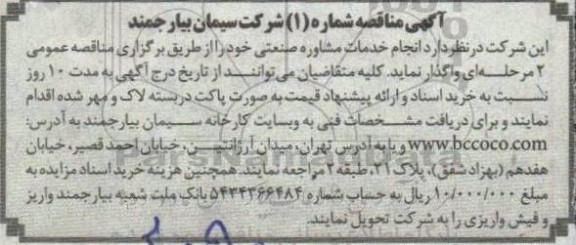 آگهی مناقصه شماره (۱) شرکت سیمان بیارجمند
این شرکت در نظر دارد انجام خدمات مشاوره صنعتی خود را از طریق برگزاری مناقصه عمومی
۲ مرحله‌ای واگذار نماید. کلیه متقاضیان می‌توانند از تاریخ درج آگهی به مدت ۱۰ روز
نسبت به خرید اسناد و ارائه پیشنهاد قیمت به صورت پاکت دربسته لاک و مهر شده اقدام
نمایند و برای دریافت مشخصات فنی به وبسایت کارخانه سیمان بیارجمند به آدرس:
www.bccoco.com و یا به آدرس تهران، میدان آرژانتین، خیابان احمد قصیر، خیابان
هفدهم (بهزاد شفق)، پلاک ۲۱، طبقه ۲ مراجعه نمایند. همچنین هزینه خرید اسناد مزایده به
مبلغ ۱۰/۰۰۰/۰۰۰ ریال به حساب شماره ۵۴۳۴۳۶۶۴۸۴ بانک ملت شعبه بیارجمند واریز
و فیش واریزی را به شرکت تحویل نمایند.